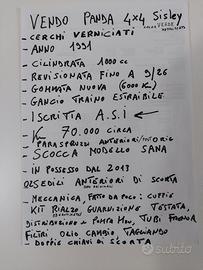 VENDO PANDA 4x4 Sisley
COLORE VERDE
METALLIZZATO
- CERCHI VERNICIATI
- ANNO 1991
- CILINDRATA 1000 cc
- REVISIONATA FINO A 9/26
- GOMMATA NUOVA (6000 K.)
- GANCIO TRAINO ESTRAIBILE
- ISCRITTA A.S.I
- K 70.000 CIRCA
- PARASPRUZZI ANTERIORI/POSTERIORI
- SCOCCA MODELLO SANA
- IN POSSESSO DAL 2013
- 02 SEDILI ANTERIORI DI SCORTA
- MECCANICA, FATTO DA POCO: CUFFIE
KIT RIALZO, GUARNIZIONE TESTATA,
DISTRIBUZIONE + POMPA H2O, TUBI FRENO
FILTRI OLIO CAMBIO TAGLIANDO
- DOPPIE CHIAVI DI SCORTA
subito